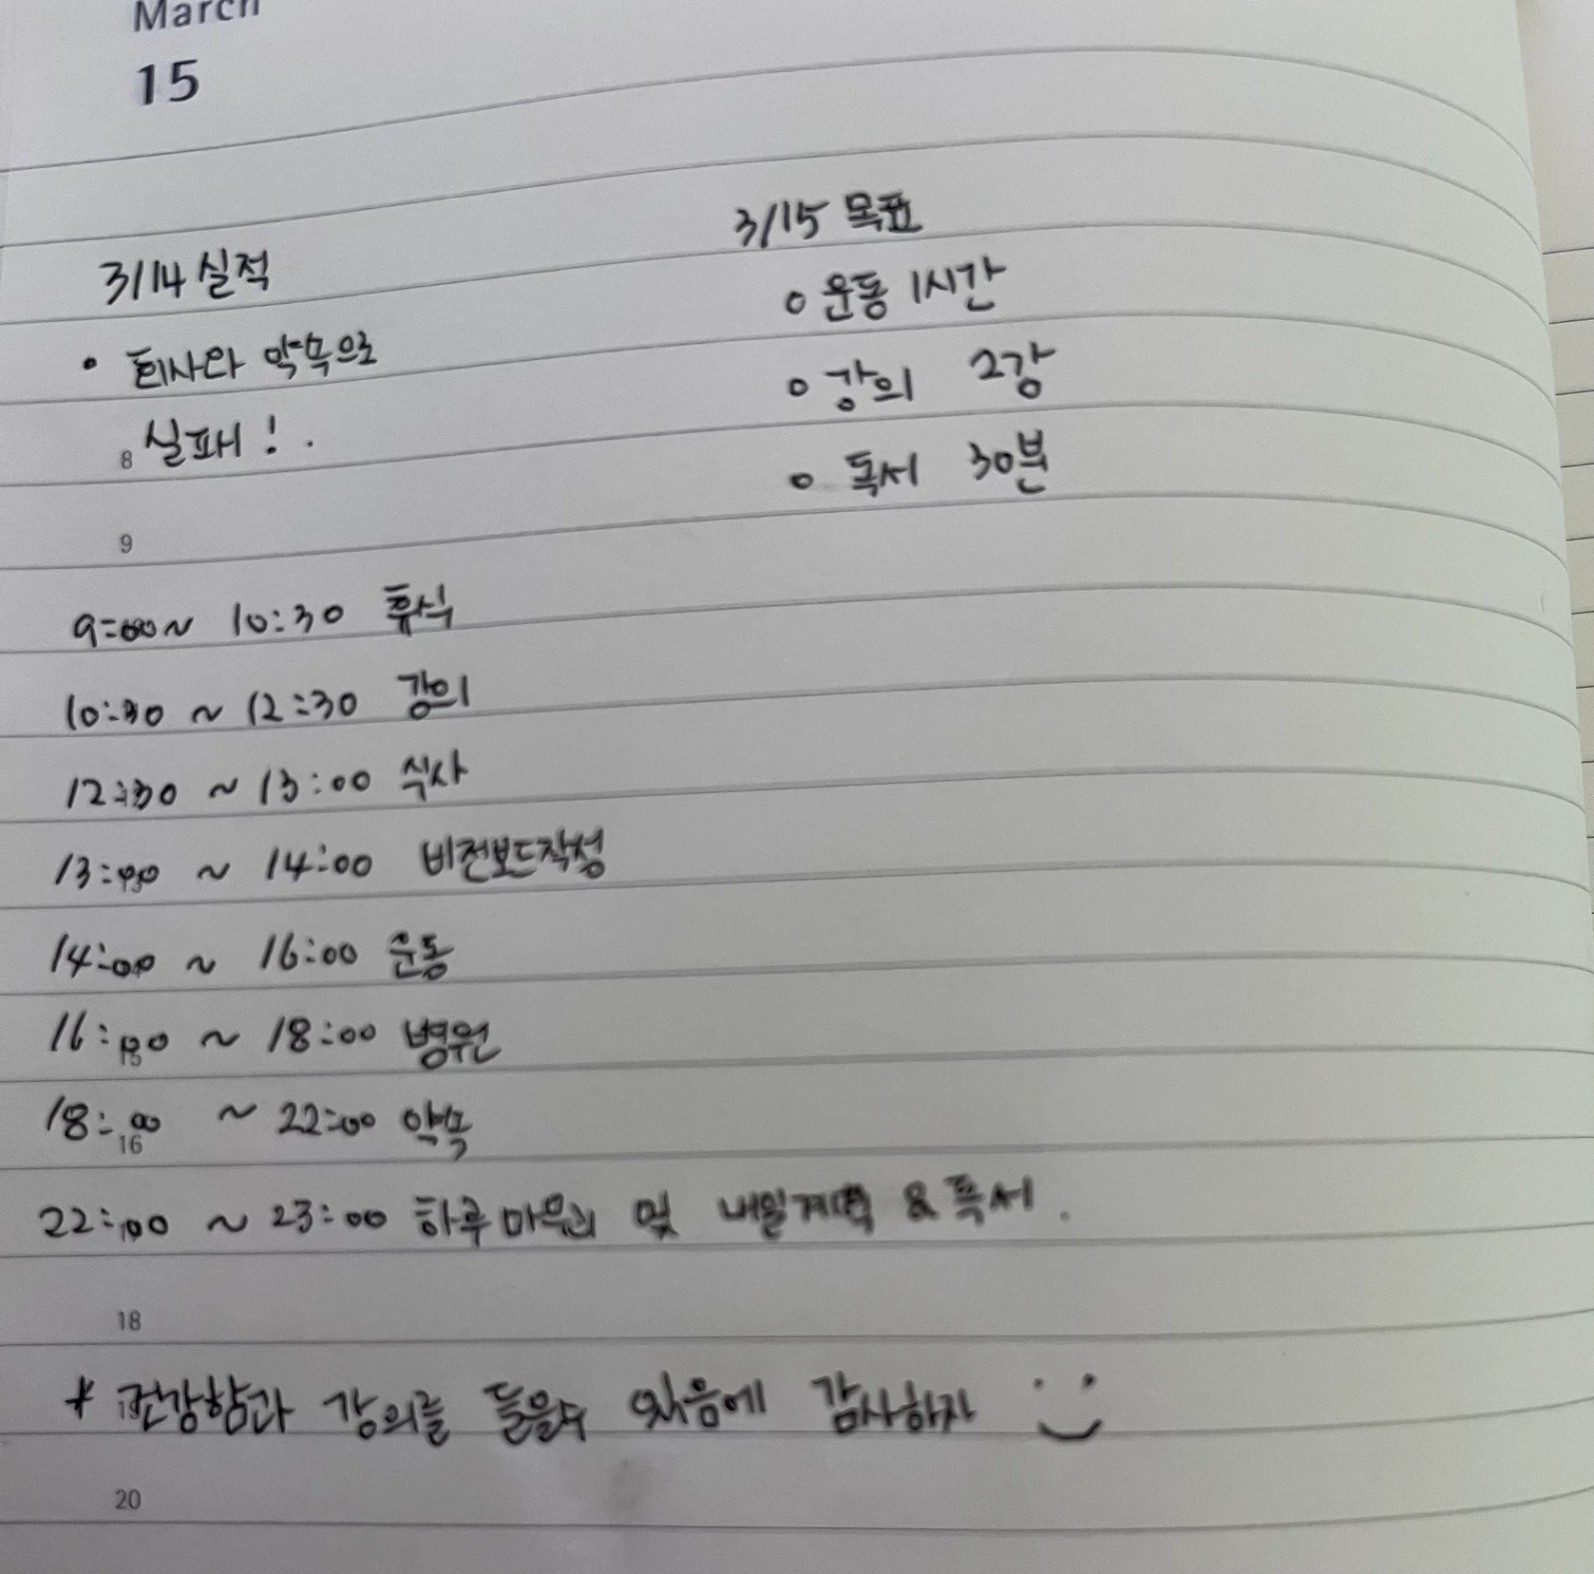 March
15
3/14 실적
• 회사와 약속으로
실패! .
3/15 목표
○ 운동 1시간
○ 강의 2강
○ 독서 30분
8
9
9:00 ~ 10:30 휴식
10:30 ~ 12:30 강의
12:30 ~ 13:00 식사
13:00 ~ 14:00 비전보드작성
14:00 ~ 16:00 운동
16:00 ~ 18:00 병원
15
18:00 ~ 22:00 약속
16
22:00 ~ 23:00 하루 마무리 및 내일계획 & 독서.
18
* 건강함과 강의를 들을수 있음에 감사하자
20